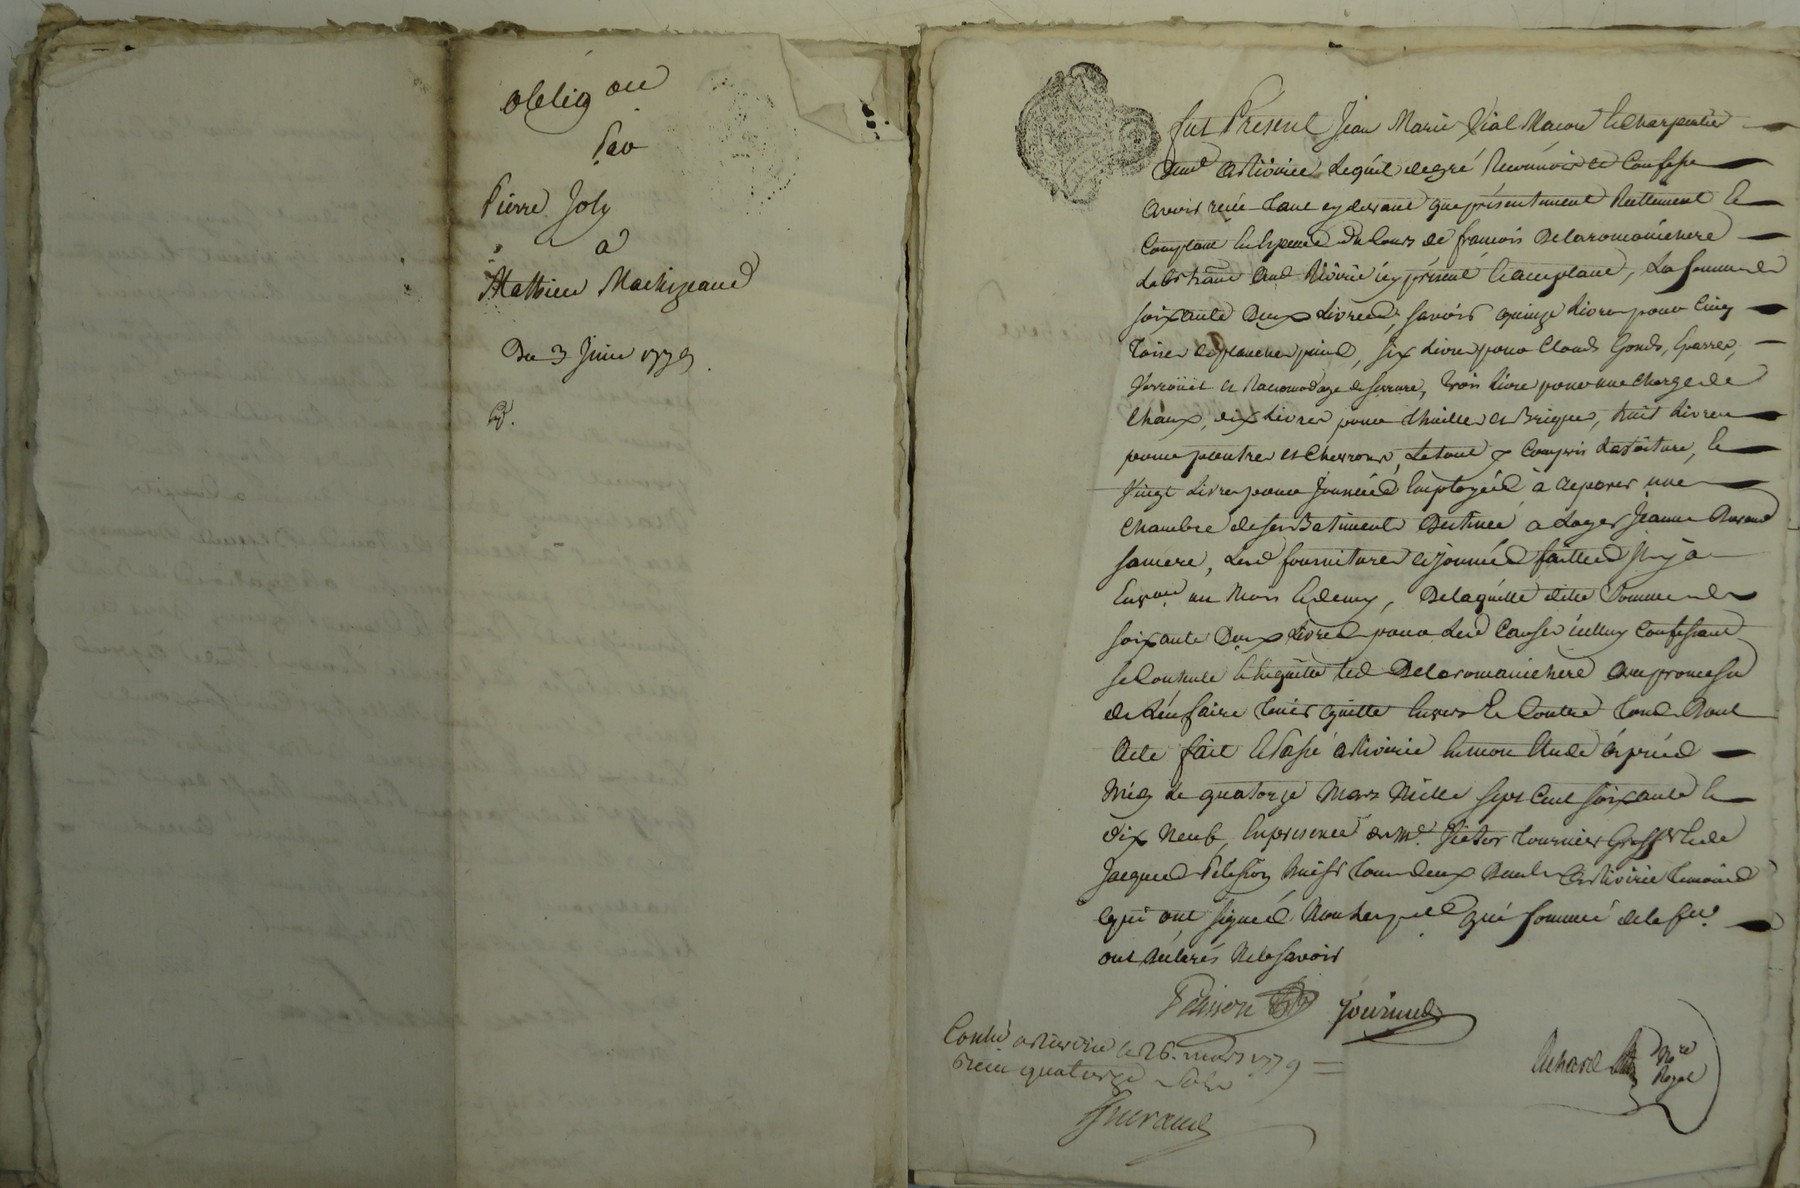 obligon
Par
Pierre Joly
a
Mathieu Machizaud
Du 3 Juin 1779.
fut Present Jean Marie Vial Macon & charpentier
demt a Riverie Lequel de gré Reconnois et Confesse
avoir reçu tant cy devant que présentement Reellement &
Comptant en especes du Cours de francois Delaromanichere
demt aud Riverie icy présent & acceptant, La somme de
soixante Deux Livres, savoir quinze Livres pour cinq
toises de plancher, six Livres pour Clouds Gonds, Eparres,
Verrouil et Racomodage de serrure, trois Livre pour une charge de
Chaux, dix Livres pour thuilles et Briques, huit Livres
pour poutres et chevrons, Le tout y compris La voiture, &
vingt Livres pour Journées Employées à reparer une
chambre de ses Batiments Destinée a Loger Jeanne
sa mere, Lesd fournitures et journées faittes Il y a
Envon un Mois & demy, De laquelle ditte somme de
soixante Deux Livres pour Lesd Causes icelluy Confessant
se Contente & en quitte led Delaromanichere avec promesse
de L'en faire tenir quitte Envers & Contre tous Dont
Acte fait & Passé a Riverie en mon Etude après
Midy Le quatorze Mars Mille sept Cent soixante &
dix Neuf, En presence de Me. Victor Tournier Greffier & de
Jacques Pelisson huissr tous deux Demts a Riverie temoins
qui ont signés Non Les parties qui sommé de le fre.
ont déclarés Ne le savoir
Pelisson Tournier
Conlé a Riverie le 26. mars 1779
Recu quatorze sols
Achard Nre
Royal